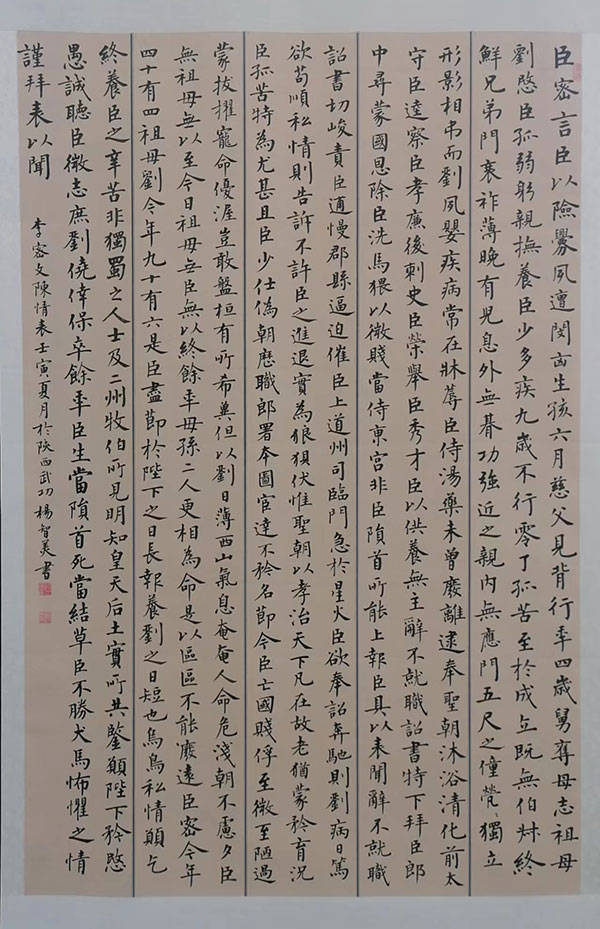 臣密言臣以險釁夙遭閔凶生孩六月慈父見背行年四歲舅奪母志祖母
劉愍臣孤弱躬親撫養臣少多疾九歲不行零丁孤苦至於成立既無伯叔終
鮮兄弟門衰祚薄晚有兒息外無朞功強近之親內無應門五尺之僮煢〻獨立
形影相弔而劉夙嬰疾病常在牀蓐臣侍湯藥未曾廢離逮奉聖朝沐浴清化前太
守臣逵察臣孝廉後刺史臣榮舉臣秀才臣以供養無主辭不就職詔書特下拜臣郎
中尋蒙國恩除臣洗馬猥以微賤當侍東宮非臣隕首所能上報臣具以表聞辭不就職
詔書切峻責臣逋慢郡縣逼迫催臣上道州司臨門急於星火臣欲奉詔奔馳則劉病日篤
欲苟順私情則告訴不許臣之進退實為狼狽伏惟聖朝以孝治天下凡在故老猶蒙矜育況
臣孤苦特為尤甚且臣少仕偽朝歷職郎署本圖宦達不矜名節今臣亡國賤俘至微至陋過
蒙拔擢寵命優渥豈敢盤桓有所希冀但以劉日薄西山氣息奄奄人命危淺朝不慮夕臣
無祖母無以至今日祖母無臣無以終餘年母孫二人更相為命是以區區不能廢遠臣密今年
四十有四祖母劉今年九十有六是臣盡節於陛下之日長報養劉之日短也烏鳥私情願乞
終養臣之辛苦非獨蜀之人士及二州牧伯所見明知皇天后土實所共鑒願陛下矜愍
愚誠聽臣微志庶劉僥倖保卒餘年臣生當隕首死當結草臣不勝犬馬怖懼之情
謹拜表以聞
李密文陳情表壬寅夏月於陝西武功楊智美書